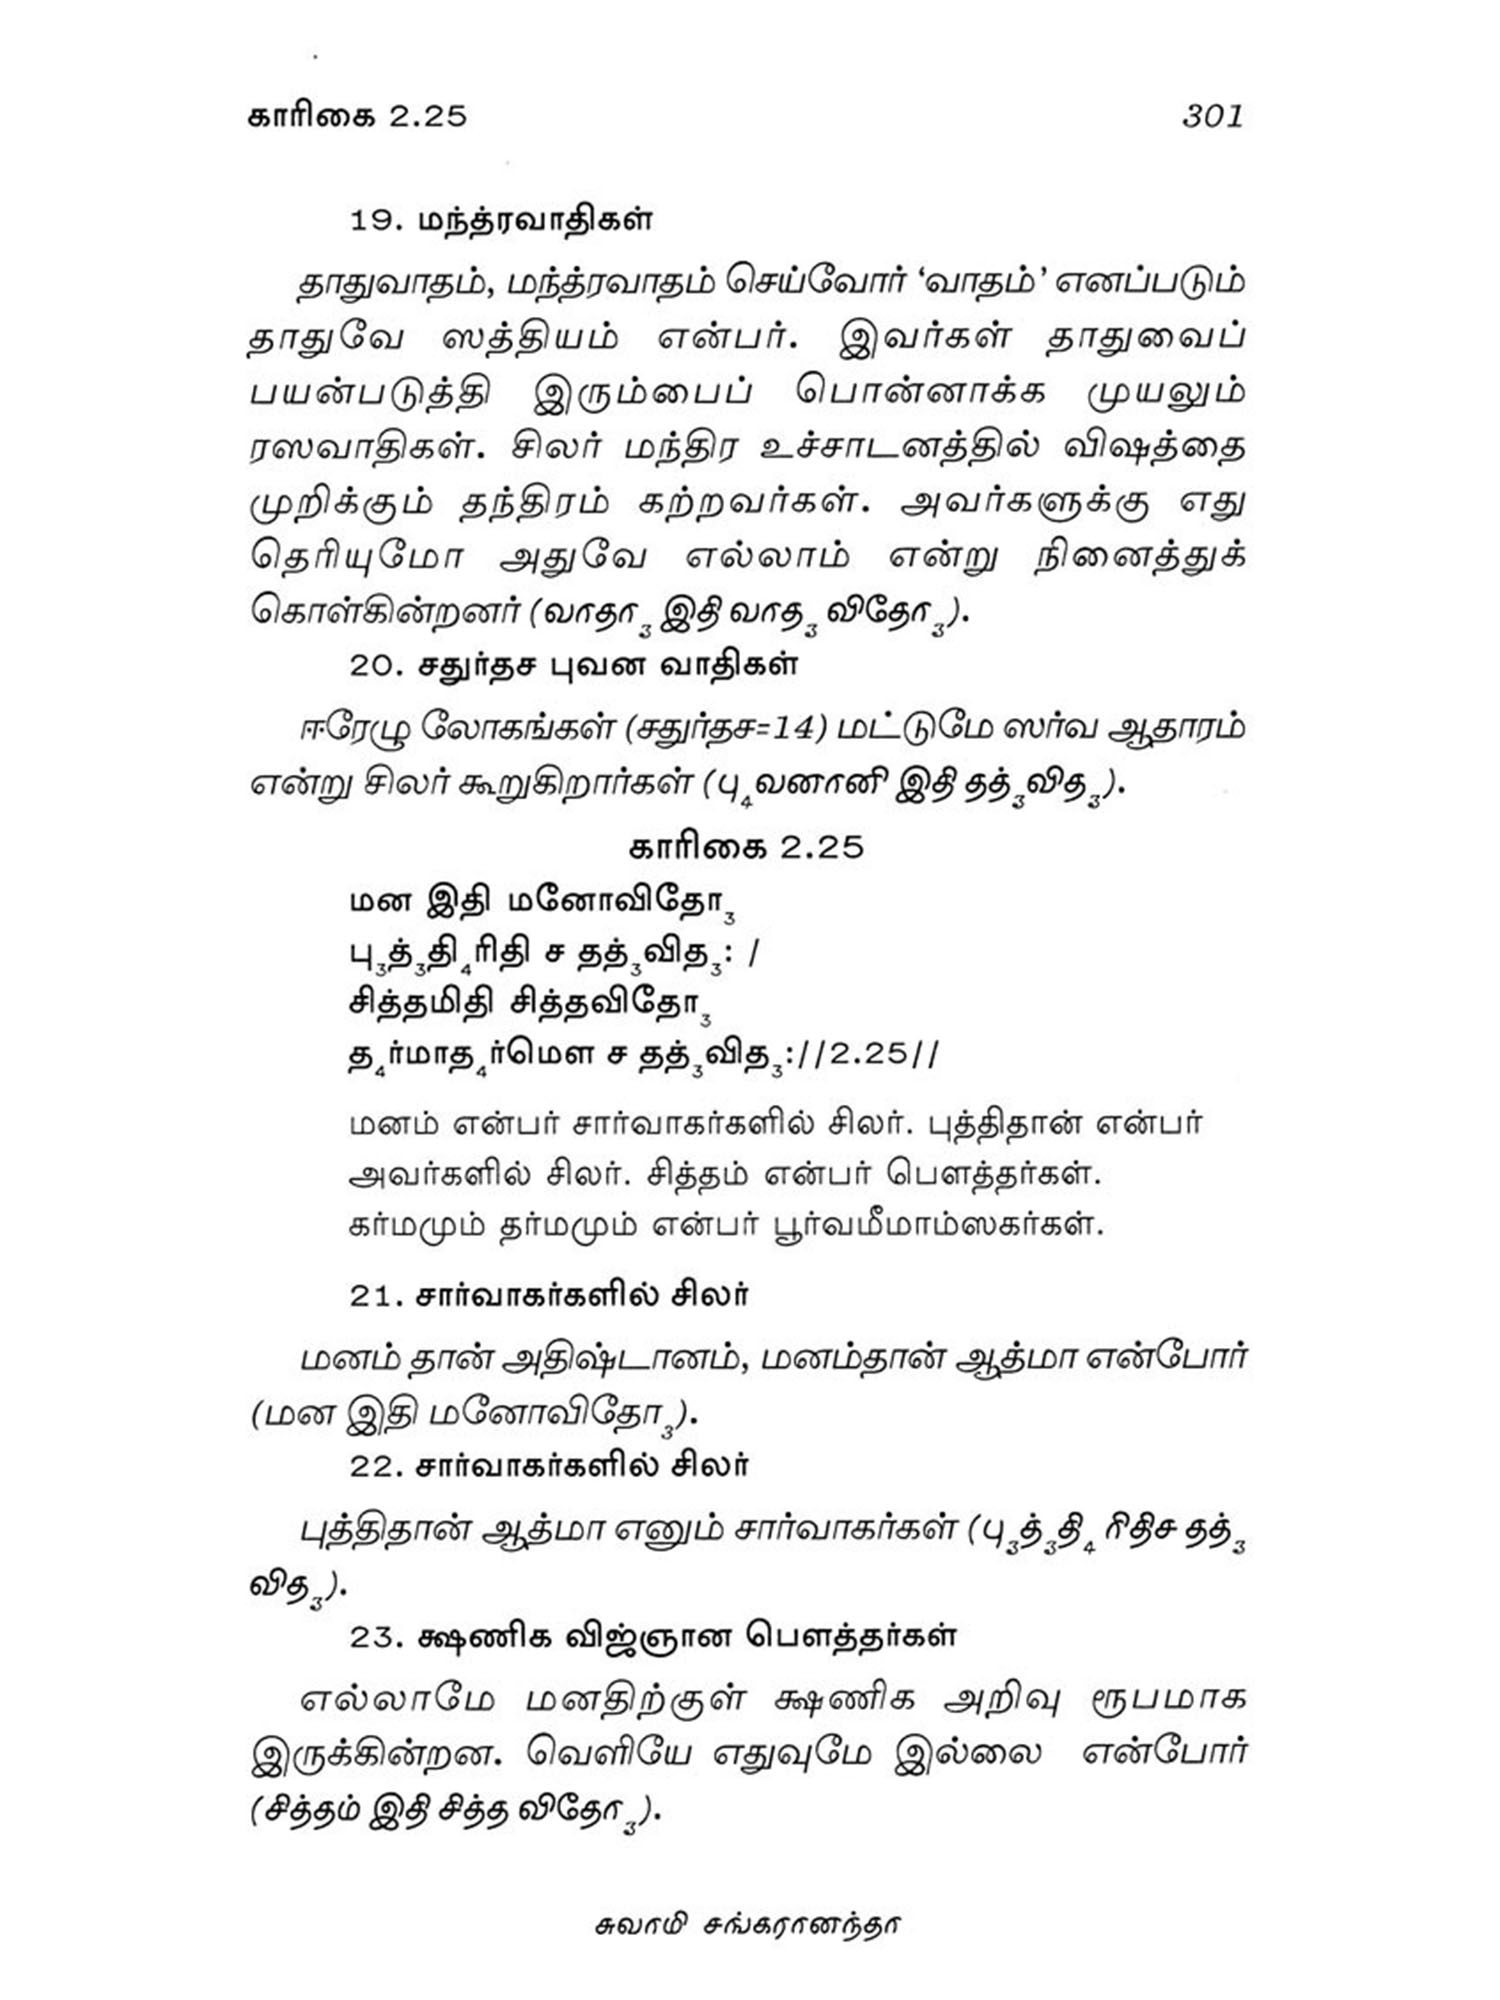 காரிகை 2.25 301
19. மந்த்ரவாதிகள்
தாதுவாதம், மந்த்ரவாதம் செய்வோர் ‘வாதம்’ எனப்படும்
தாதுவே ஸத்தியம் என்பர். இவர்கள் தாதுவைப்
பயன்படுத்தி இரும்பைப் பொன்னாக்க முயலும்
ரஸவாதிகள். சிலர் மந்திர உச்சாடனத்தில் விஷத்தை
முறிக்கும் தந்திரம் கற்றவர்கள். அவர்களுக்கு எது
தெரியுமோ அதுவே எல்லாம் என்று நினைத்துக்
கொள்கின்றனர் (வாதா₃ இதி வாத₃ விதோ₃).
20. சதுர்தச புவன வாதிகள்
ஈரேழு லோகங்கள் (சதுர்தச=14) மட்டுமே ஸர்வ ஆதாரம்
என்று சிலர் கூறுகிறார்கள் (பு₄வனானி இதி தத்₃வித₃).
காரிகை 2.25
மன இதி மனோவிதோ₃
பு₃த்₃தி₄ரிதி ச தத்₃வித₃: /
சித்தமிதி சித்தவிதோ₃
த₄ர்மாத₄ர்மௌ ச தத்₃வித₃://2.25//
மனம் என்பர் சார்வாகர்களில் சிலர். புத்திதான் என்பர்
அவர்களில் சிலர். சித்தம் என்பர் பௌத்தர்கள்.
கர்மமும் தர்மமும் என்பர் பூர்வமீமாம்ஸகர்கள்.
21. சார்வாகர்களில் சிலர்
மனம் தான் அதிஷ்டானம், மனம்தான் ஆத்மா என்போர்
(மன இதி மனோவிதோ₃).
22. சார்வாகர்களில் சிலர்
புத்திதான் ஆத்மா எனும் சார்வாகர்கள் (பு₃த்₃தி₄ ரிதிச தத்₃
வித₃).
23. க்ஷணிக விஜ்ஞான பௌத்தர்கள்
எல்லாமே மனதிற்குள் க்ஷணிக அறிவு ரூபமாக
இருக்கின்றன. வெளியே எதுவுமே இல்லை என்போர்
(சித்தம் இதி சித்த விதோ₃).
சுவாமி சங்கரானந்தா